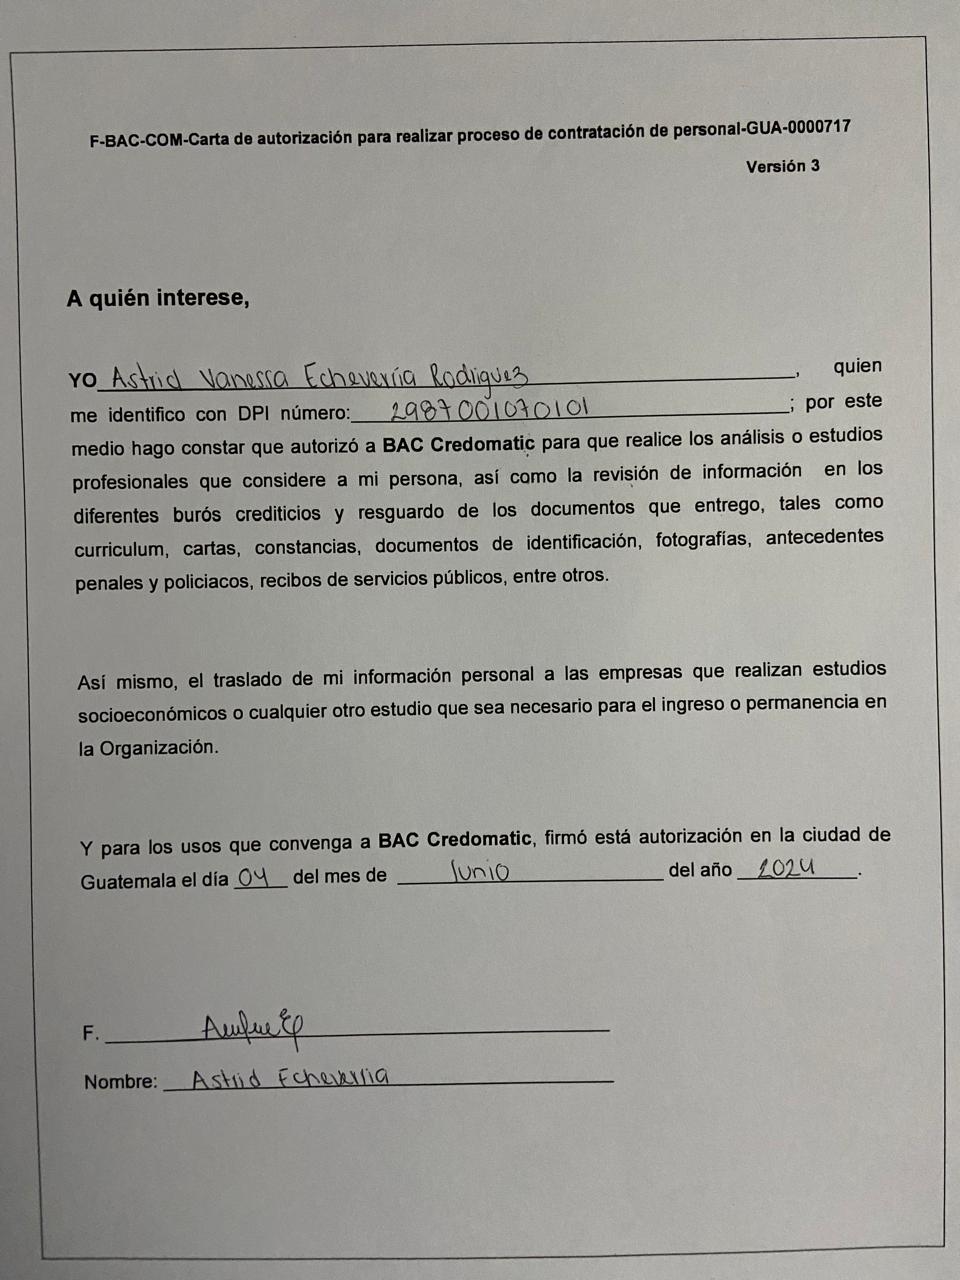 F-BAC-COM-Carta de autorización para realizar proceso de contratación de personal-GUA-0000717
Versión 3
A quién interese,
YO Astrid Vanessa Echeverría Rodiguez, quien
me identifico con DPI número: 2987001070101; por este
medio hago constar que autorizó a BAC Credomatic para que realice los análisis o estudios
profesionales que considere a mi persona, así como la revisión de información en los
diferentes burós crediticios y resguardo de los documentos que entrego, tales como
curriculum, cartas, constancias, documentos de identificación, fotografías, antecedentes
penales y policiacos, recibos de servicios públicos, entre otros.
Así mismo, el traslado de mi información personal a las empresas que realizan estudios
socioeconómicos o cualquier otro estudio que sea necesario para el ingreso o permanencia en
la Organización.
Y para los usos que convenga a BAC Credomatic, firmó está autorización en la ciudad de
Guatemala el día 04 del mes de Junio del año 2024.
F.
Nombre: Astrid Echeverria